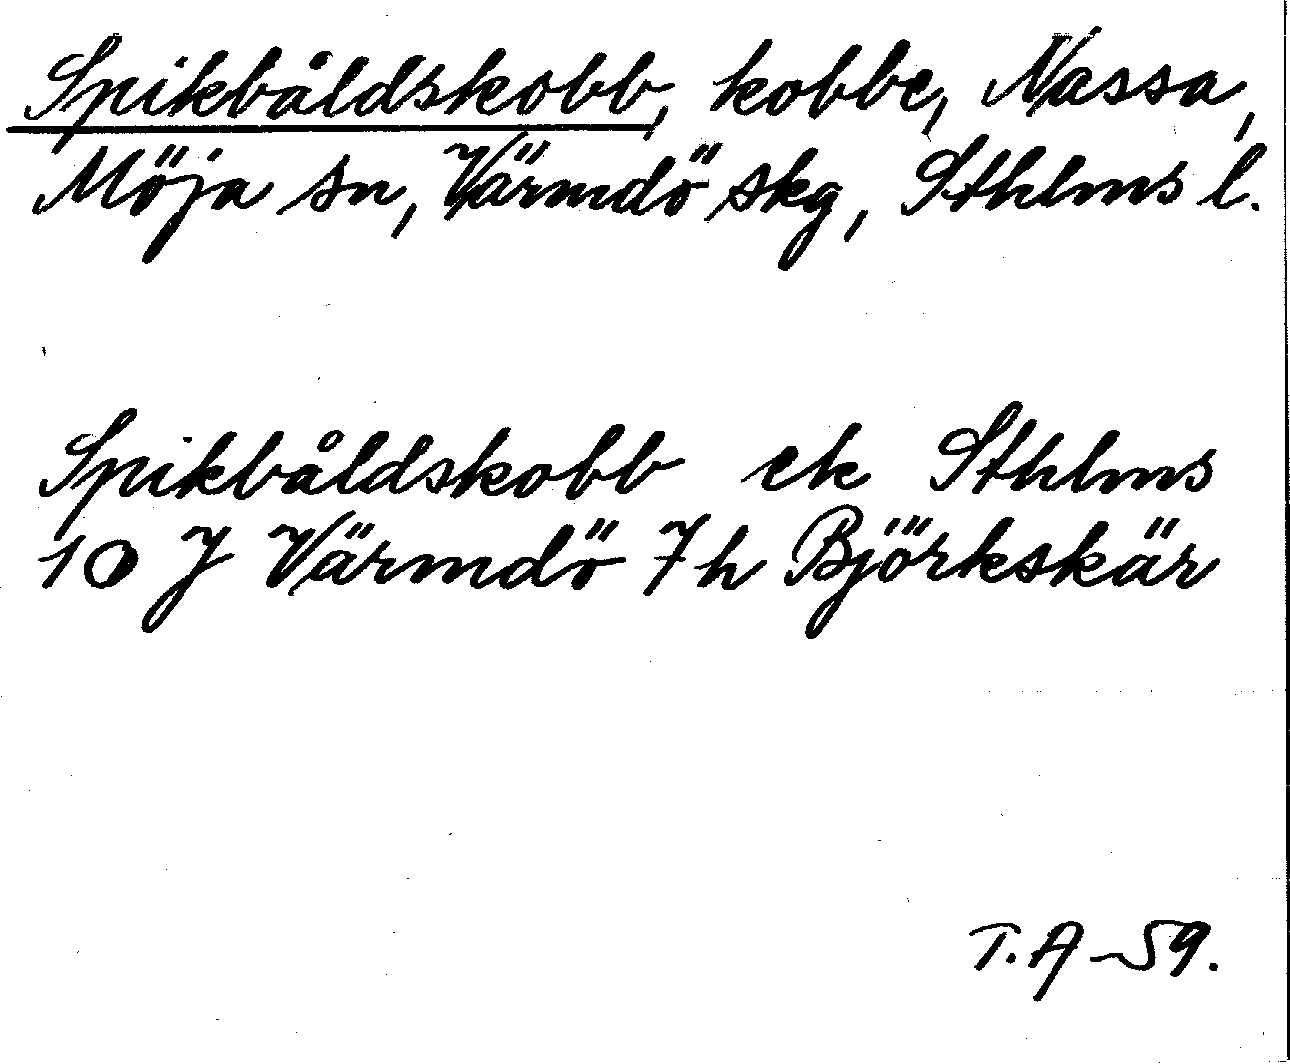 Spikbåldskobb, kobbe, Nassa,
Möja sn, Värmdö skg, Sthlms l.
Spikbåldskobb ek Sthlms
10 J Värmdö 7h Björkskär
T.A-59.